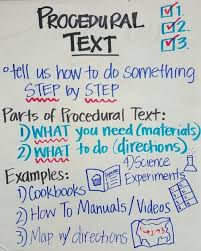 PROCEDURAL
TEXT
1.
2.
3.
tell us how to do something
STEP by STEP
Parts of Procedural Text:
1) WHAT you need (materials)
2) WHAT to do (directions)
Examples:
4) Science
Experiments
1) Cookbooks
2) How To Manuals/Videos
3) Map w/ directions